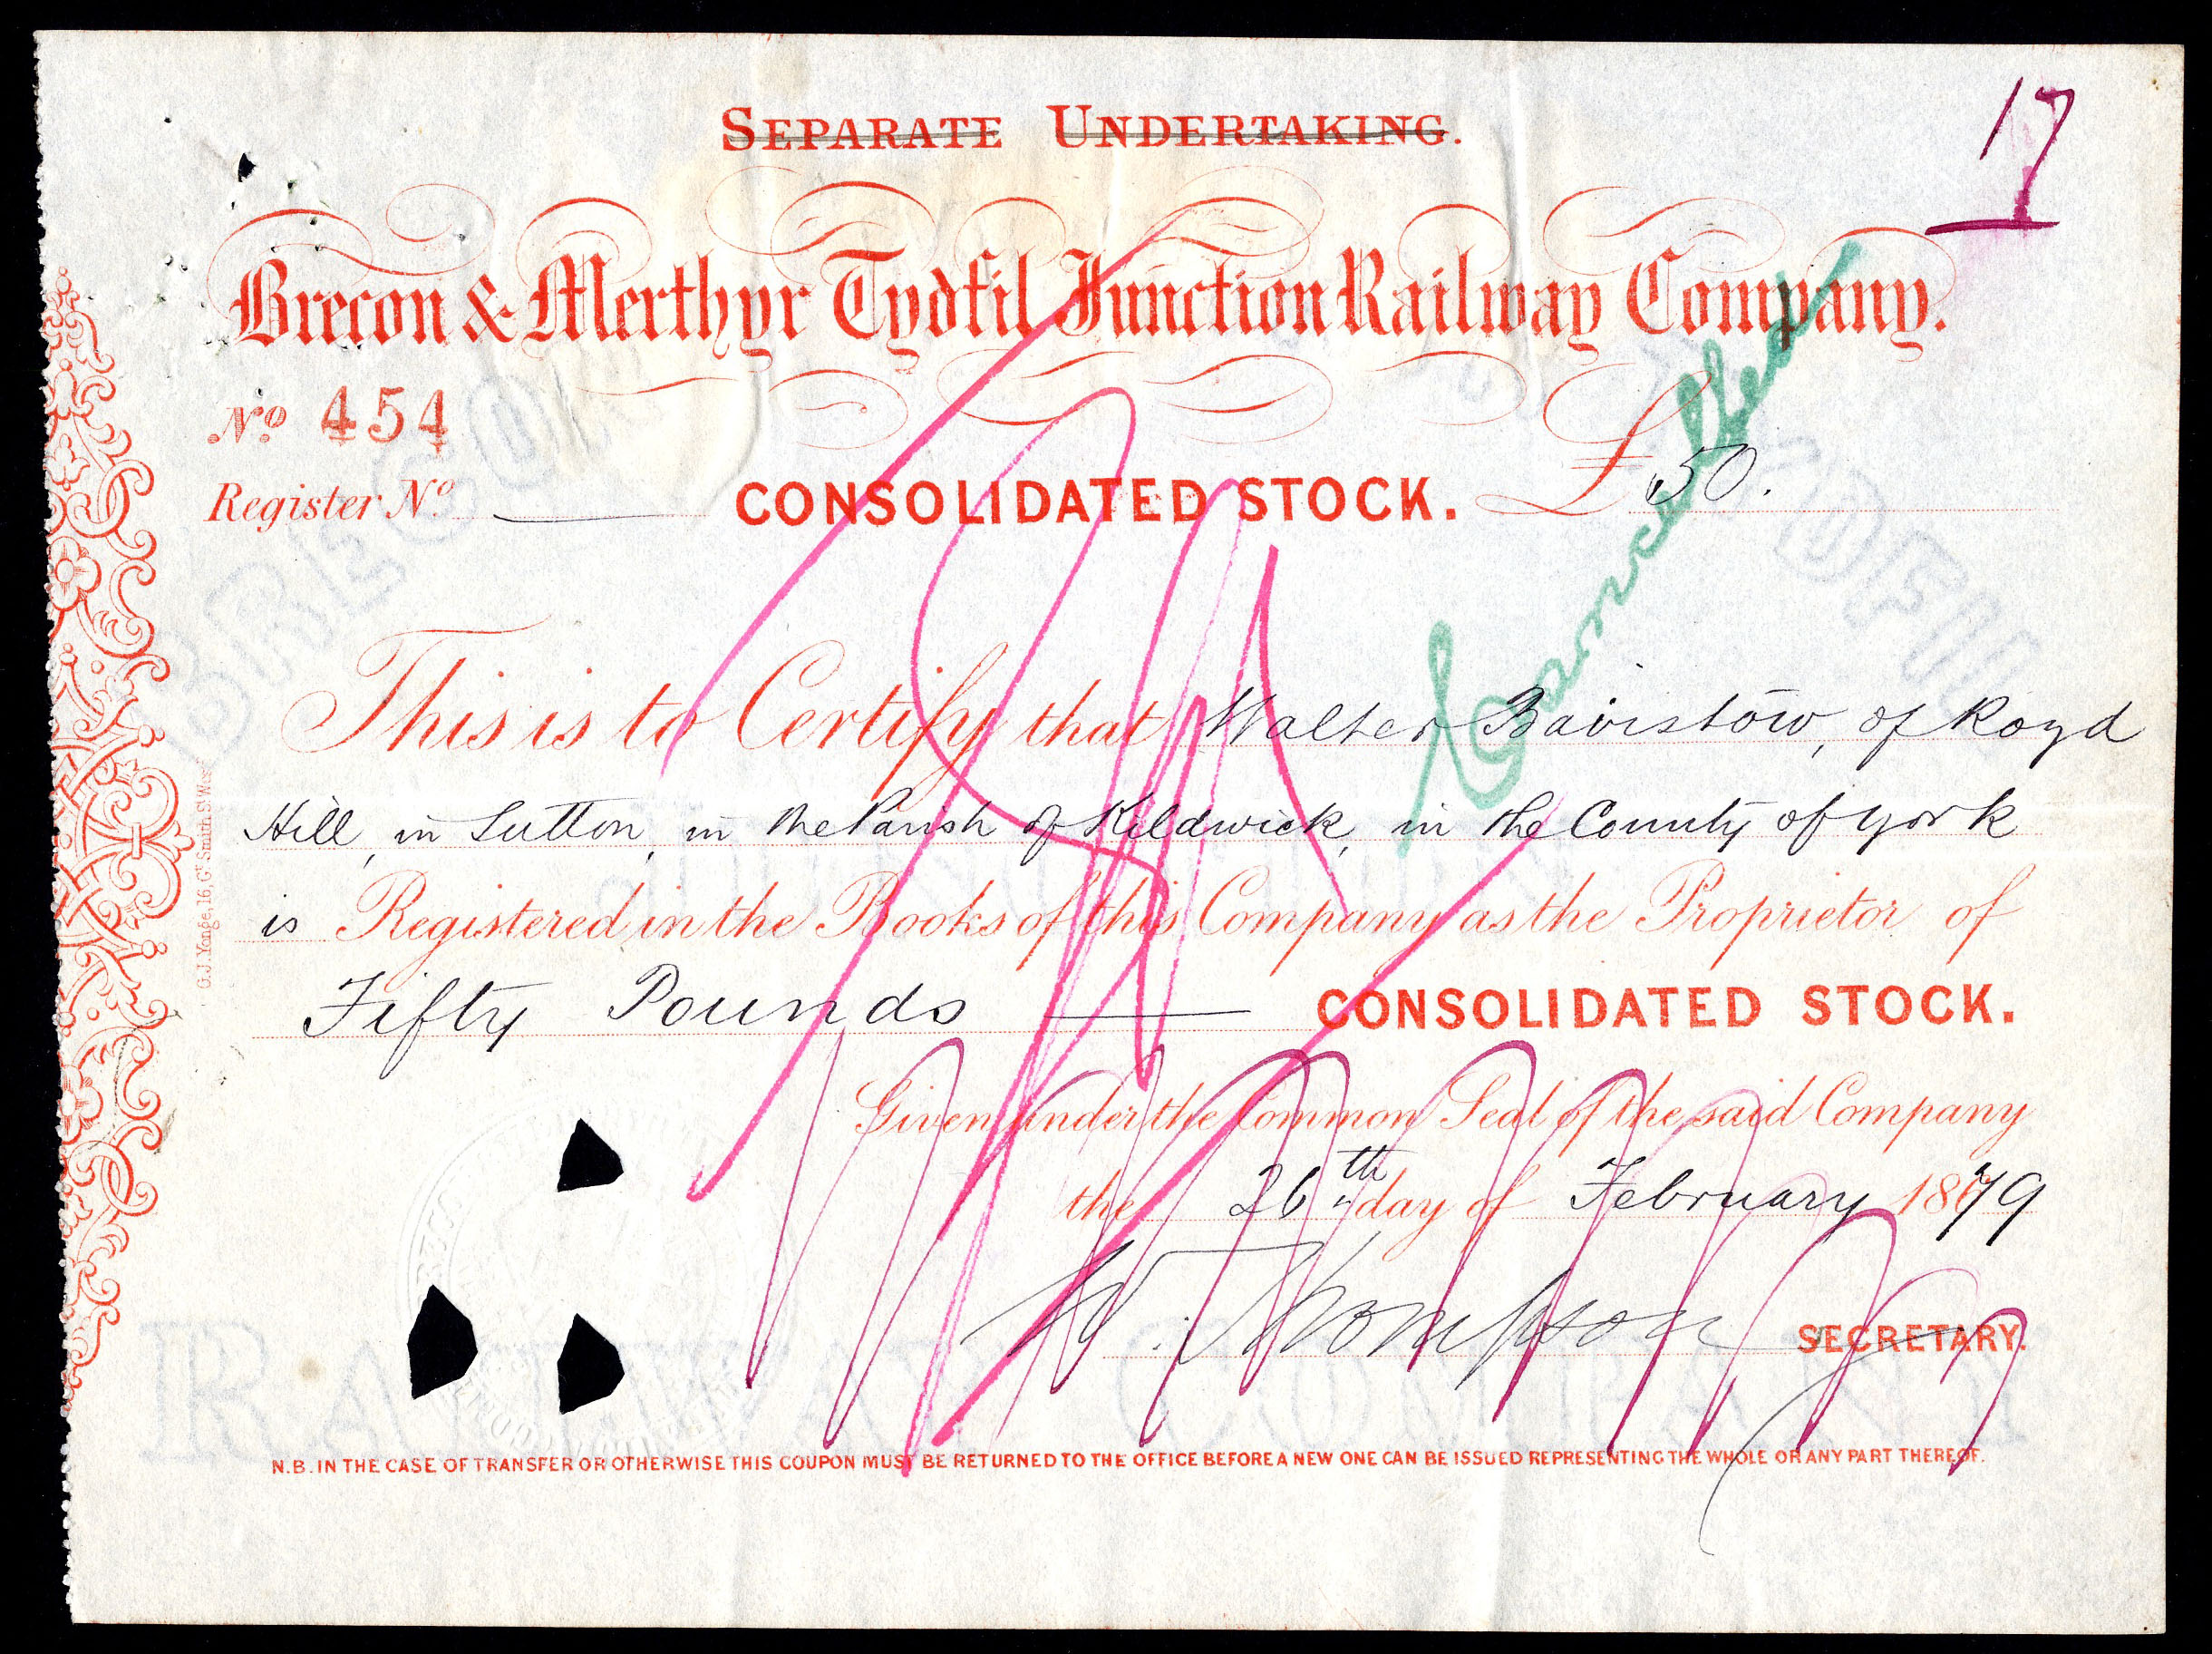 17
SEPARATE UNDERTAKING.
Brecon & Merthyr Tydfil Junction Railway Company.
No. 454
Register No. CONSOLIDATED STOCK. £ 50.
Cancelled
This is to Certify that Walter Bairstow, of Royd
Hill, in Sutton, in the Parish of Kildwick, in the County of York
is Registered in the Books of this Company as the Proprietor of
Fifty Pounds CONSOLIDATED STOCK.
Given under the Common Seal of the said Company
the 26th day of February 1879
W. Thompson SECRETARY.
N.B. IN THE CASE OF TRANSFER OR OTHERWISE THIS COUPON MUST BE RETURNED TO THE OFFICE BEFORE A NEW ONE CAN BE ISSUED REPRESENTING THE WHOLE OR ANY PART THEREOF.
G.J. Yonge, 16, Gt. Smith St. West